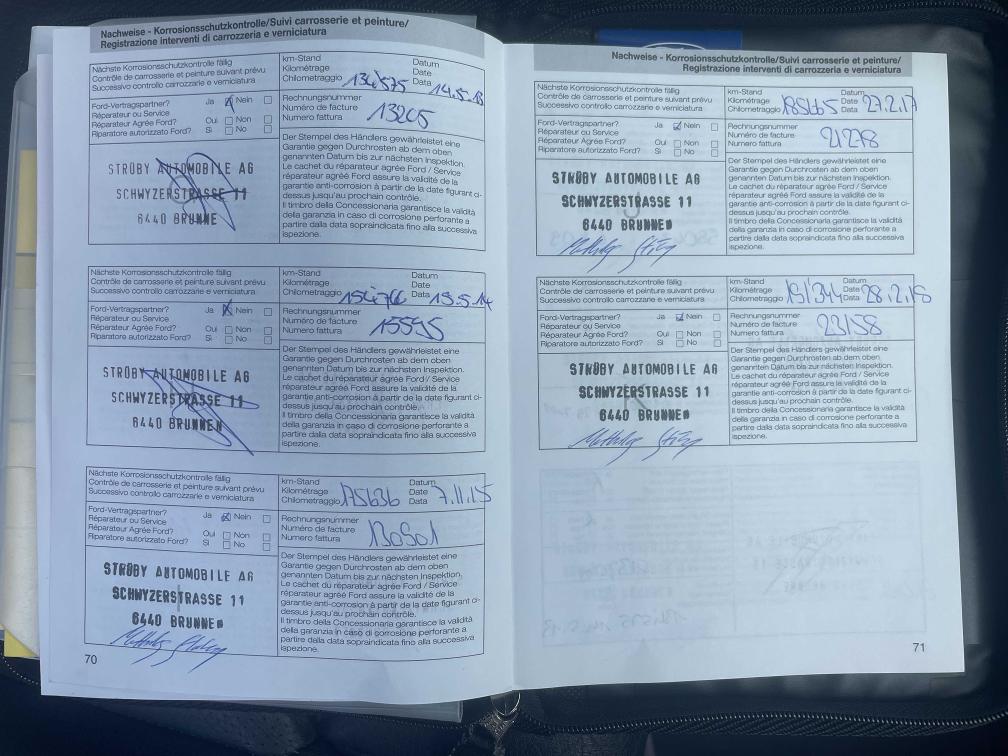 Nachweise - Korrosionsschutzkontrolle/Suivi carrosserie et peinture/
Registrazione interventi di carrozzeria e verniciatura
Nächste Korrosionsschutzkontrolle fällig
Contrôle de carrosserie et peinture suivant prévu
Successivo controllo carrozzarie e verniciatura
km-Stand Datum
Kilométrage Date
Chilometraggio 134575 Data 14.5.13
Ford-Vertragspartner? Ja Nein
Réparateur ou Service
Réparateur Agréé Ford? Oui Non
Riparatore autorizzato Ford? Si No
Rechnungsnummer
Numéro de facture
Numero fattura 13205
STRÜBY AUTOMOBILE AG
SCHWYZERSTRASSE 11
6440 BRUNNE
Der Stempel des Händlers gewährleistet eine
Garantie gegen Durchrosten ab dem oben
genannten Datum bis zur nächsten Inspektion.
Le cachet du réparateur agréé Ford / Service
réparateur agréé Ford assure la validité de la
garantie anti-corrosion à partir de la date figurant ci-
dessus jusqu'au prochain contrôle.
Il timbro della Concessionaria garantisce la validità
della garanzia in caso di corrosione perforante a
partire dalla data sopraindicata fino alla successiva
ispezione.
Nächste Korrosionsschutzkontrolle fällig
Contrôle de carrosserie et peinture suivant prévu
Successivo controllo carrozzarie e verniciatura
km-Stand Datum
Kilométrage Date
Chilometraggio 154766 Data 19.5.14
Ford-Vertragspartner? Ja Nein
Réparateur ou Service
Réparateur Agréé Ford? Oui Non
Riparatore autorizzato Ford? Si No
Rechnungsnummer
Numéro de facture
Numero fattura 15595
STRÜBY AUTOMOBILE AG
SCHWYZERSTRASSE 11
6440 BRUNNEN
Der Stempel des Händlers gewährleistet eine
Garantie gegen Durchrosten ab dem oben
genannten Datum bis zur nächsten Inspektion.
Le cachet du réparateur agréé Ford / Service
réparateur agréé Ford assure la validité de la
garantie anti-corrosion à partir de la date figurant ci-
dessus jusqu'au prochain contrôle.
Il timbro della Concessionaria garantisce la validità
della garanzia in caso di corrosione perforante a
partire dalla data sopraindicata fino alla successiva
ispezione.
Nächste Korrosionsschutzkontrolle fällig
Contrôle de carrosserie et peinture suivant prévu
Successivo controllo carrozzarie e verniciatura
km-Stand Datum
Kilométrage Date
Chilometraggio 175636 Data 7.11.15
Ford-Vertragspartner? Ja Nein
Réparateur ou Service
Réparateur Agréé Ford? Oui Non
Riparatore autorizzato Ford? Si No
Rechnungsnummer
Numéro de facture
Numero fattura
STRÜBY AUTOMOBILE AG
SCHWYZERSTRASSE 11
6440 BRUNNEN
Der Stempel des Händlers gewährleistet eine
Garantie gegen Durchrosten ab dem oben
genannten Datum bis zur nächsten Inspektion.
Le cachet du réparateur agréé Ford / Service
réparateur agréé Ford assure la validité de la
garantie anti-corrosion à partir de la date figurant ci-
dessus jusqu'au prochain contrôle.
Il timbro della Concessionaria garantisce la validità
della garanzia in caso di corrosione perforante a
partire dalla data sopraindicata fino alla successiva
ispezione.
70
Nachweise - Korrosionsschutzkontrolle/Suivi carrosserie et peinture/
Registrazione interventi di carrozzeria e verniciatura
Nächste Korrosionsschutzkontrolle fällig
Contrôle de carrosserie et peinture suivant prévu
Successivo controllo carrozzarie e verniciatura
km-Stand Datum
Kilométrage Date
Chilometraggio 185665 Data 27.2.17
Ford-Vertragspartner? Ja Nein
Réparateur ou Service
Réparateur Agréé Ford? Oui Non
Riparatore autorizzato Ford? Si No
Rechnungsnummer
Numéro de facture
Numero fattura 21278
STRÜBY AUTOMOBILE AG
SCHWYZERSTRASSE 11
6440 BRUNNEN
Der Stempel des Händlers gewährleistet eine
Garantie gegen Durchrosten ab dem oben
genannten Datum bis zur nächsten Inspektion.
Le cachet du réparateur agréé Ford / Service
réparateur agréé Ford assure la validité de la
garantie anti-corrosion à partir de la date figurant ci-
dessus jusqu'au prochain contrôle.
Il timbro della Concessionaria garantisce la validità
della garanzia in caso di corrosione perforante a
partire dalla data sopraindicata fino alla successiva
ispezione.
Nächste Korrosionsschutzkontrolle fällig
Contrôle de carrosserie et peinture suivant prévu
Successivo controllo carrozzarie e verniciatura
km-Stand Datum
Kilométrage Date
Chilometraggio 191344 Data 28.2.18
Ford-Vertragspartner? Ja Nein
Réparateur ou Service
Réparateur Agréé Ford? Oui Non
Riparatore autorizzato Ford? Si No
Rechnungsnummer
Numéro de facture
Numero fattura 23158
STRÜBY AUTOMOBILE AG
SCHWYZERSTRASSE 11
6440 BRUNNEN
Der Stempel des Händlers gewährleistet eine
Garantie gegen Durchrosten ab dem oben
genannten Datum bis zur nächsten Inspektion.
Le cachet du réparateur agréé Ford / Service
réparateur agréé Ford assure la validité de la
garantie anti-corrosion à partir de la date figurant ci-
dessus jusqu'au prochain contrôle.
Il timbro della Concessionaria garantisce la validità
della garanzia in caso di corrosione perforante a
partire dalla data sopraindicata fino alla successiva
ispezione.
71